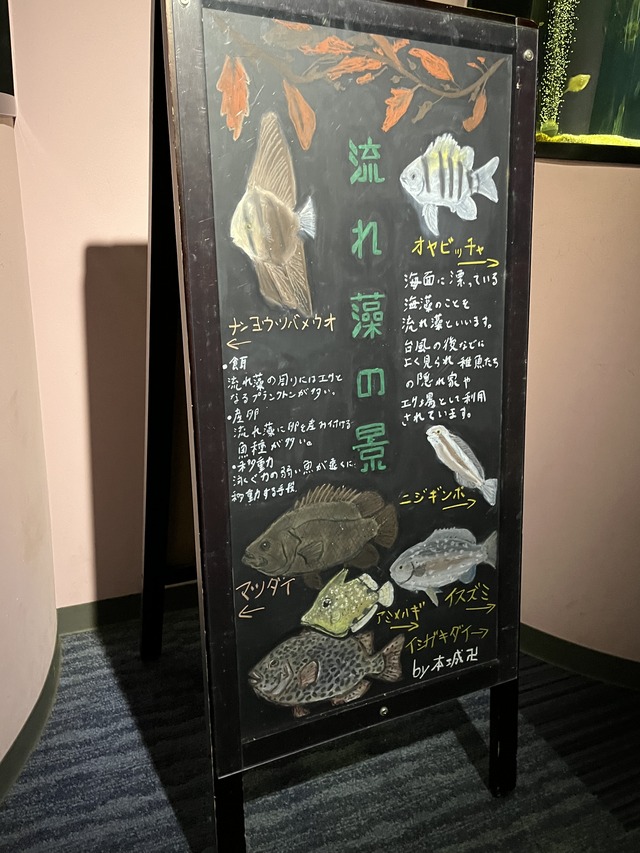 流れ藻の景
ナンヨウツバメウオ
←
・餌
流れ藻の周りにはエサと
なるプランクトンが多い。
・産卵
流れ藻に卵を産み付ける
魚種が多い。
・移動
泳ぐ力の弱い魚が遠くに
移動する手段
オヤビッチャ
→
海面に漂っている
海藻のことを
流れ藻といいます。
台風の後などに
よく見られ稚魚たち
の隠れ家や
エサ場として利用
されています。
ニジギンポ
→
マツダイ
←
アミメハギ
→
イスズミ
→
イシガキダイ→
by本城卍